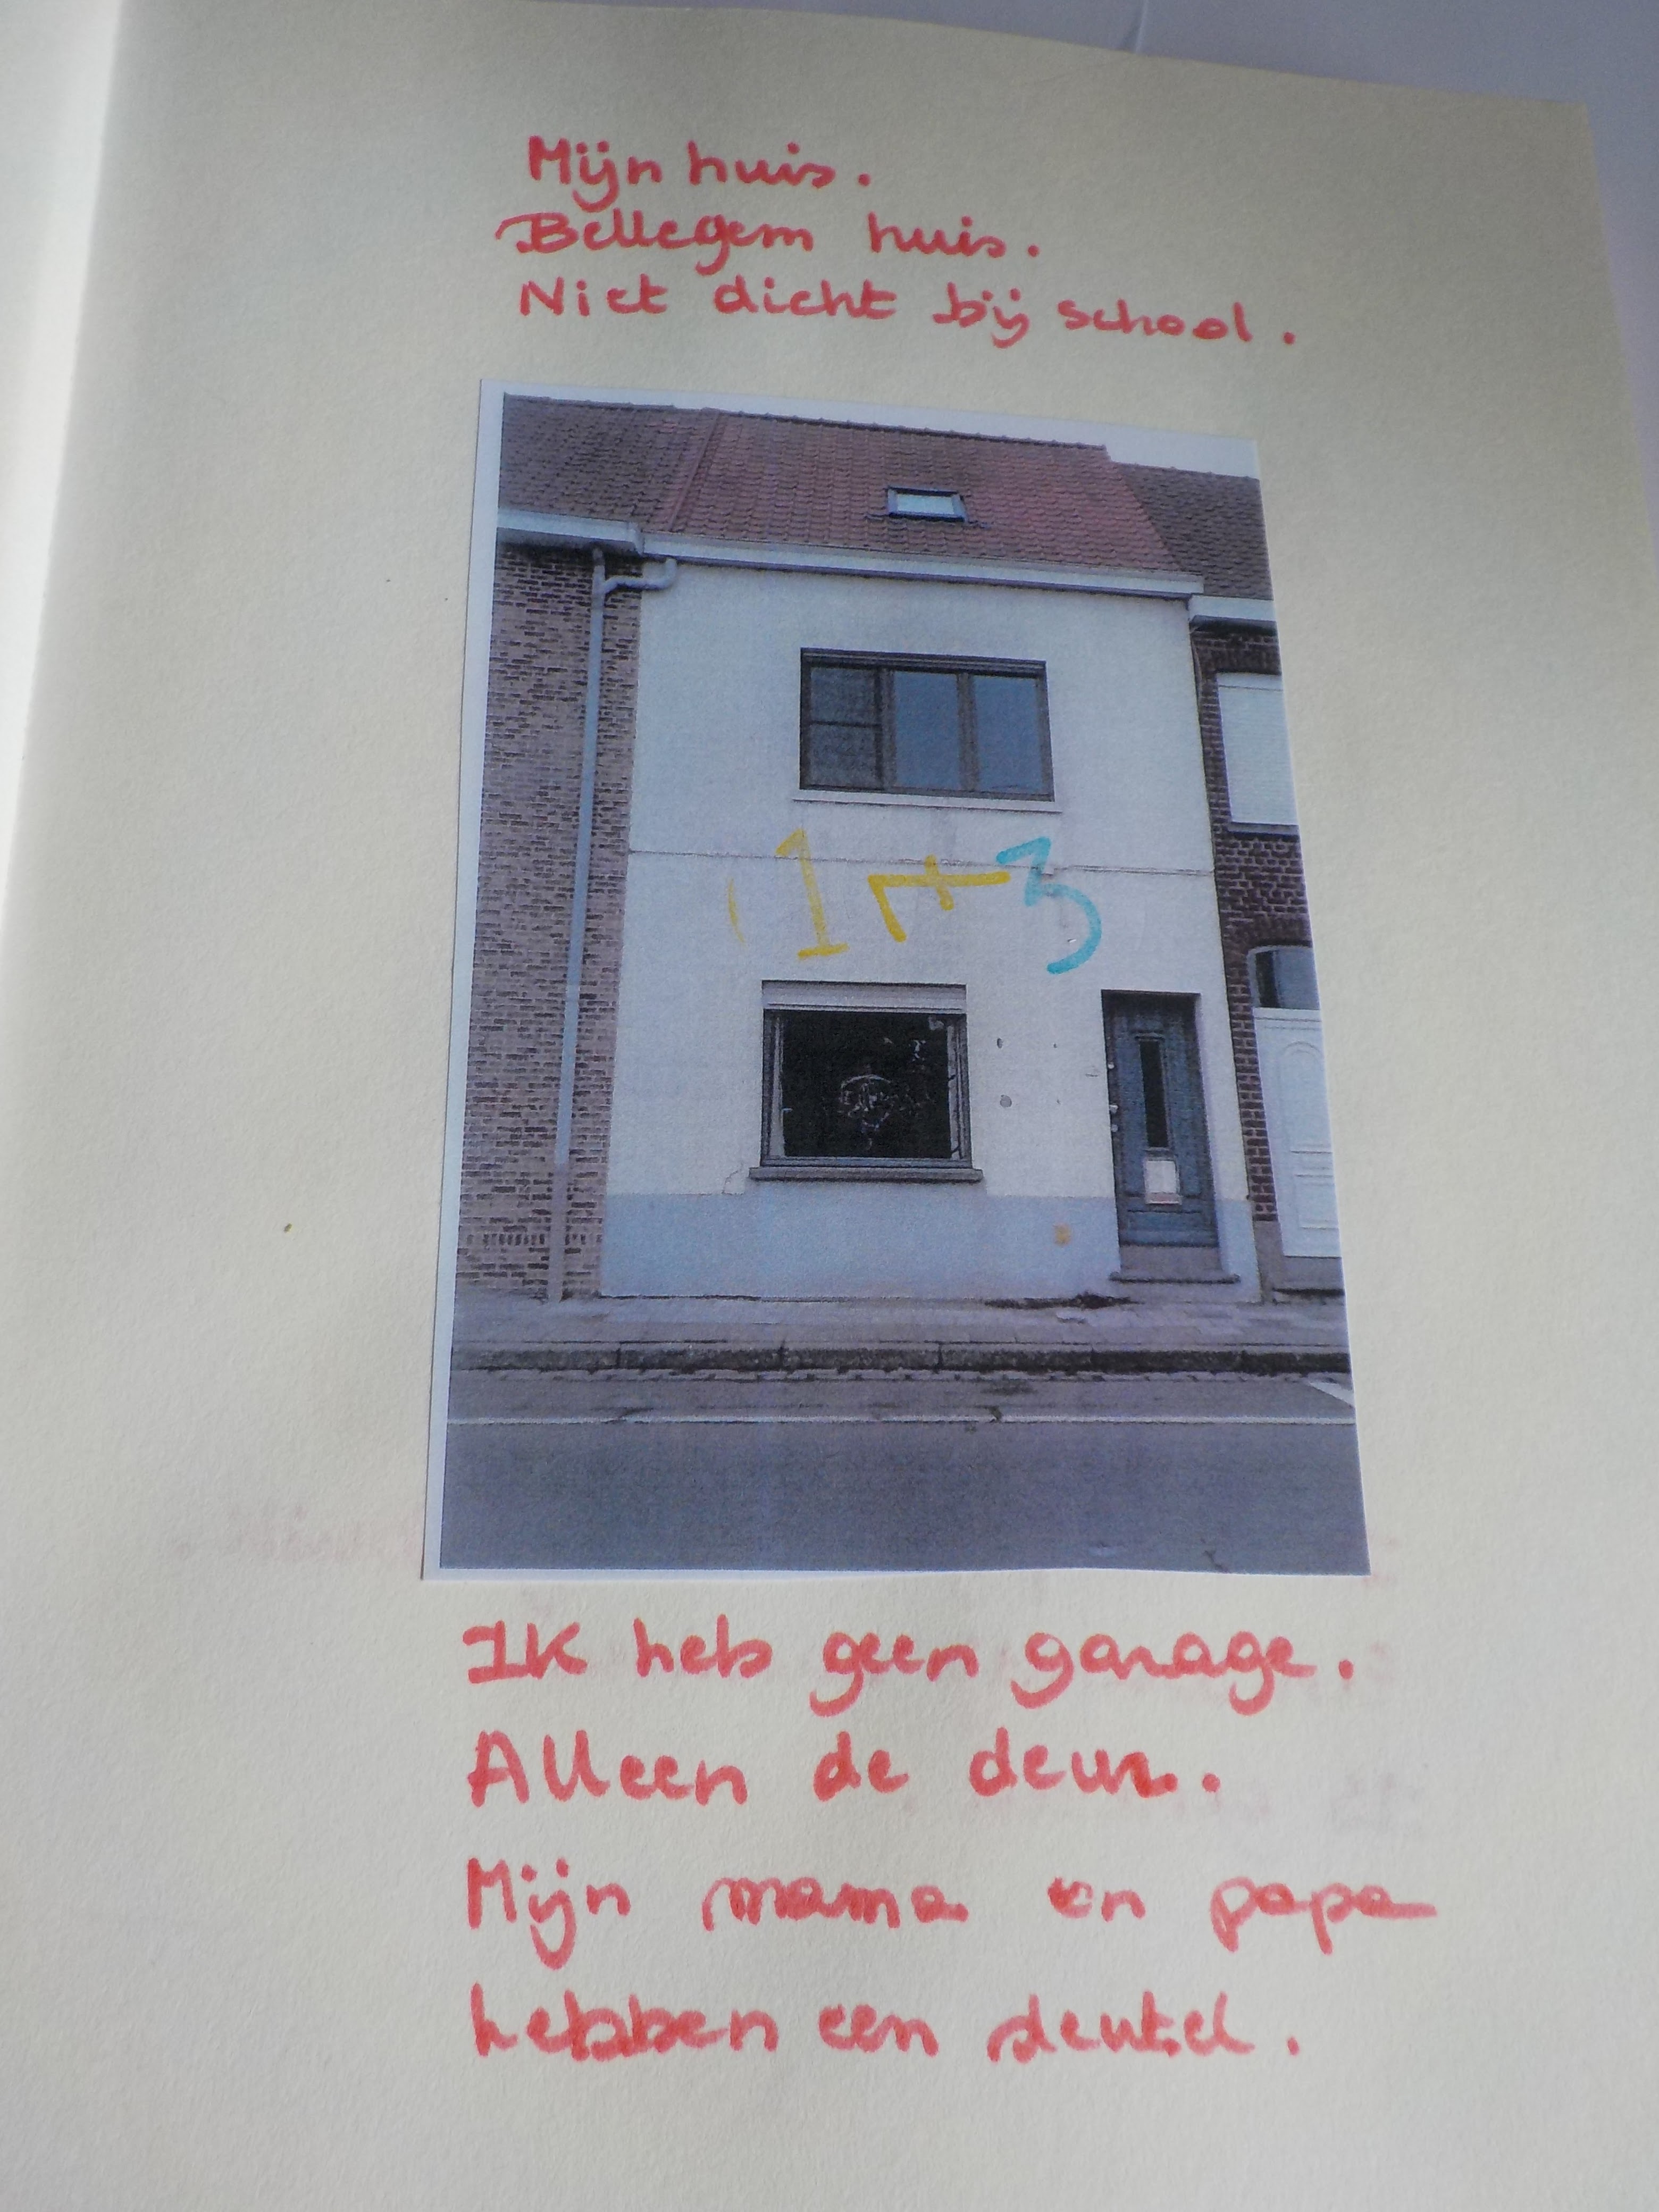 Mijn huis.
Bellegem huis.
Niet dicht bij school.
173
Ik heb geen garage.
Alleen de deur.
Mijn mama en papa
hebben een sleutel.